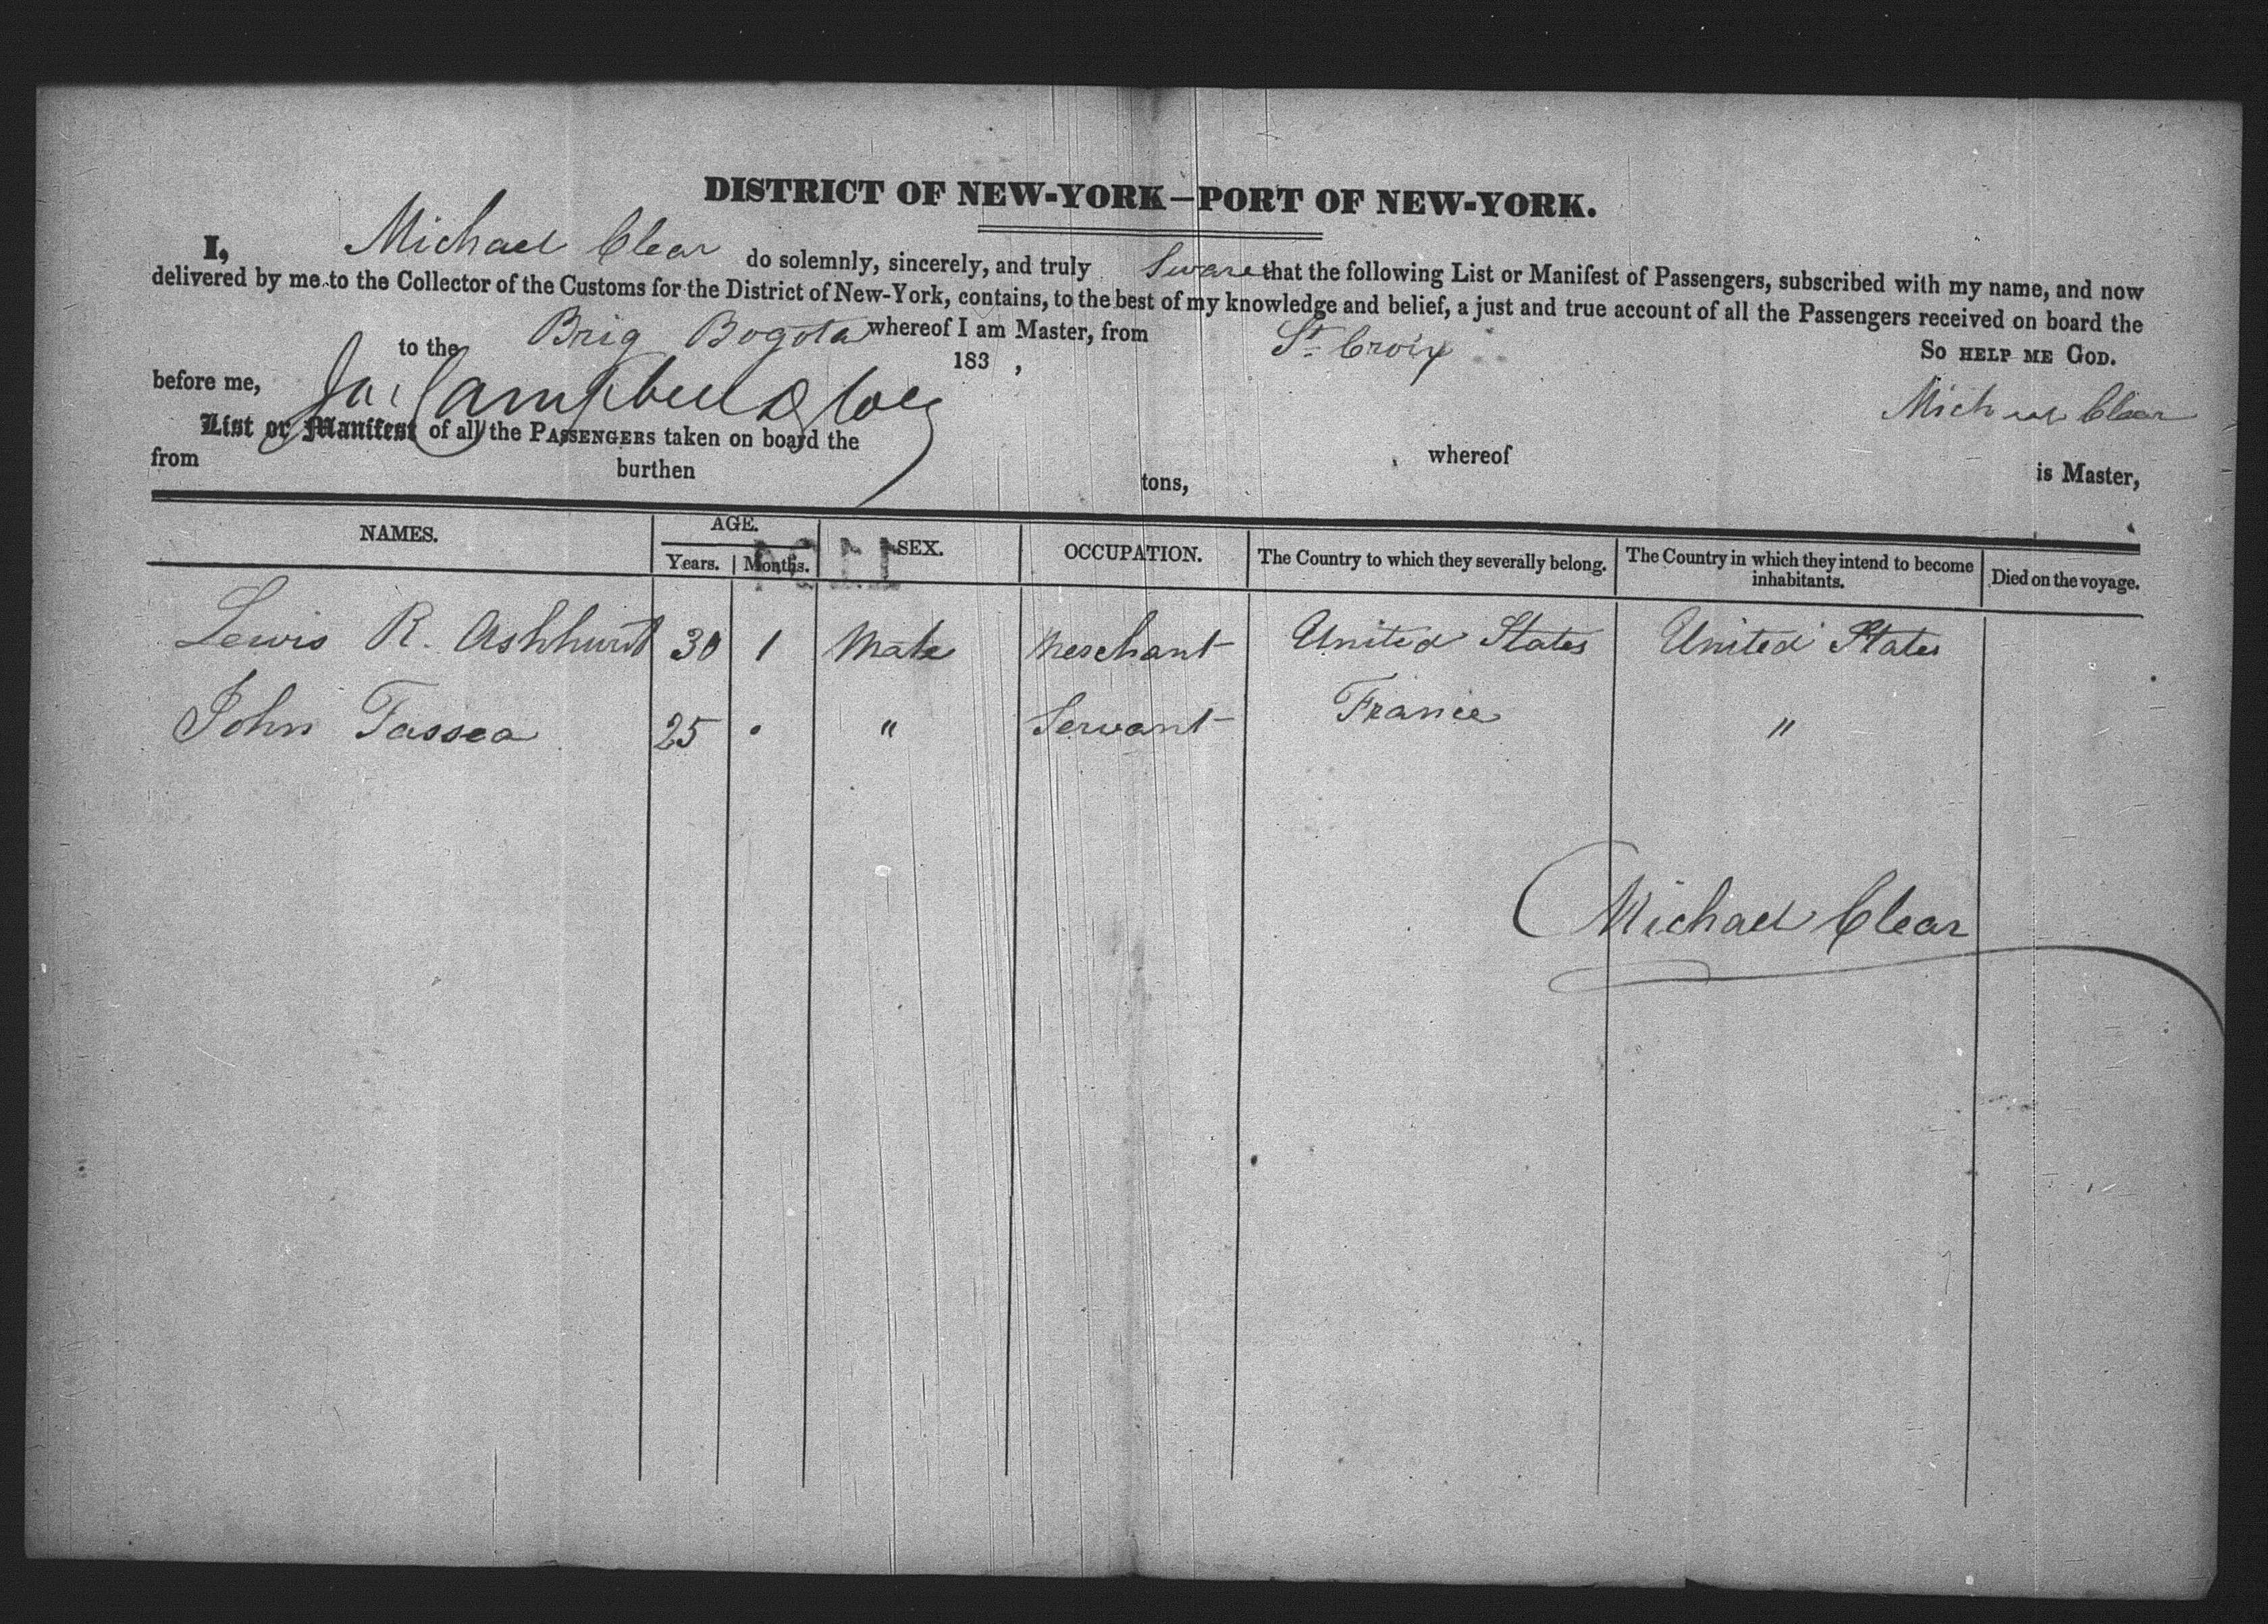 DISTRICT OF NEW-YORK—PORT OF NEW-YORK.
I, Michael Clear do solemnly, sincerely, and truly Sware that the following List or Manifest of Passengers, subscribed with my name, and now
delivered by me to the Collector of the Customs for the District of New-York, contains, to the best of my knowledge and belief, a just and true account of all the Passengers received on board the
Brig Bogota whereof I am Master, from St. Croix
to the 183 , So HELP ME GOD.
before me, Michael Clear
List or Manifest of all the PASSENGERS taken on board the whereof is Master,
from burthen tons,
NAMES. AGE. Years. Months. SEX. OCCUPATION. The Country to which they severally belong. The Country in which they intend to become inhabitants. Died on the voyage.
Lewis R. Ashhurst 30 1 Male Merchant United States United States
John Tassea 25 • " Servant France "
Michael Clear